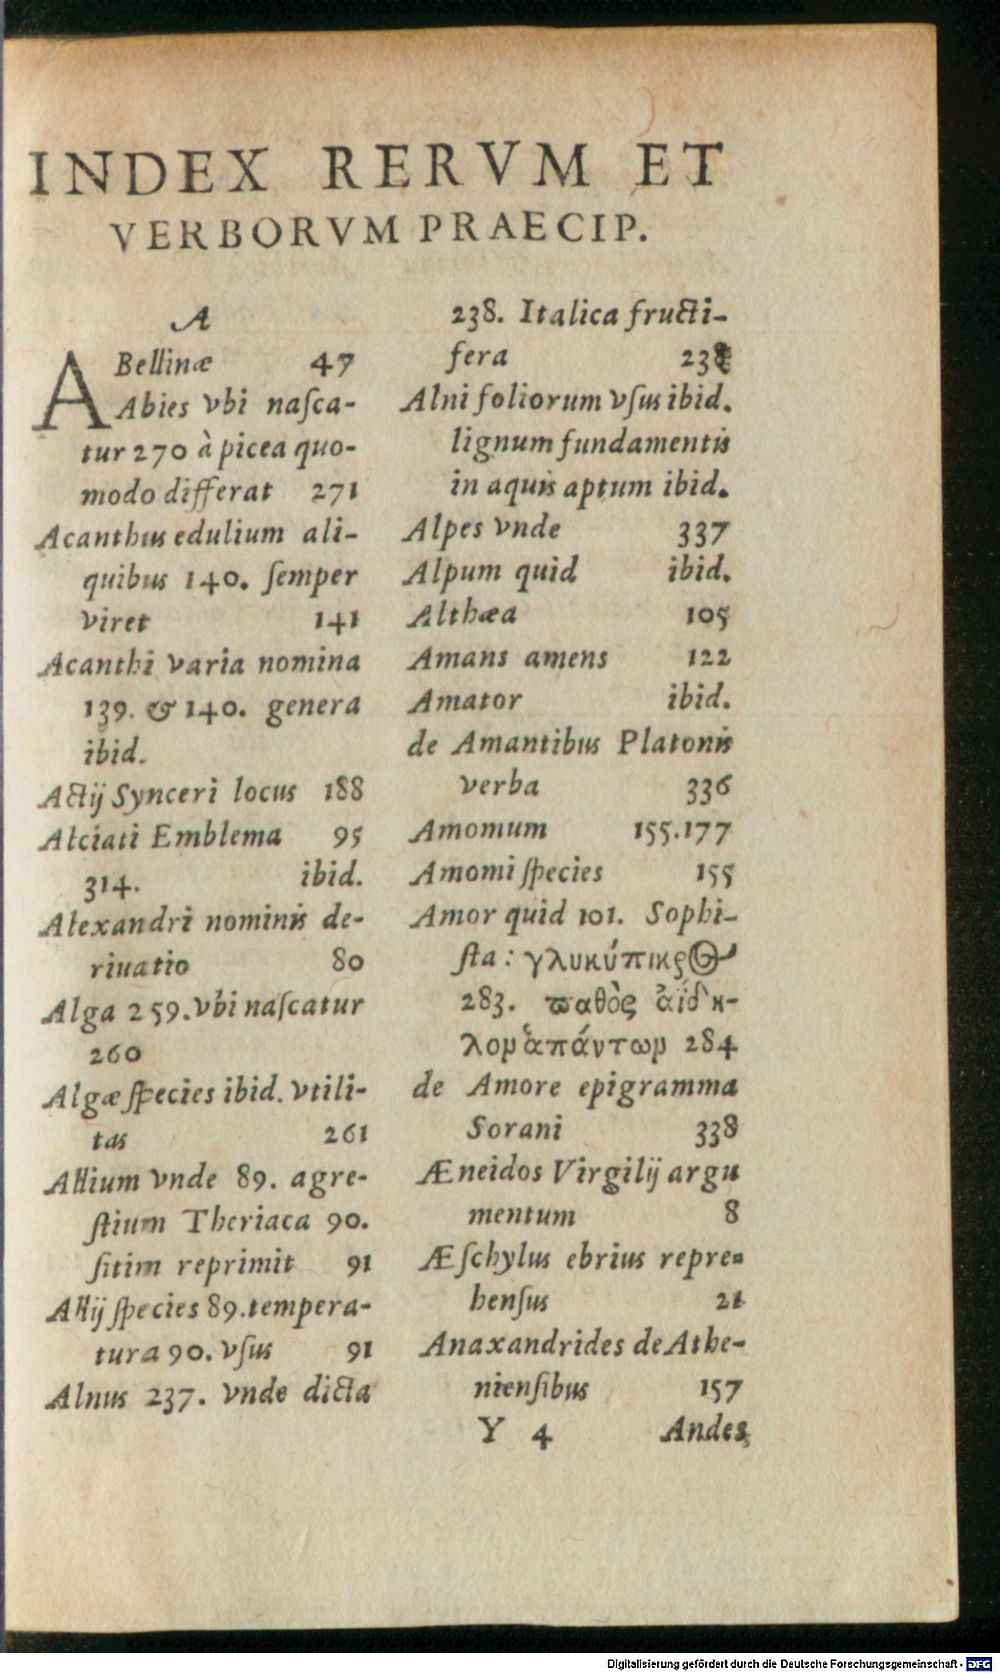 INDEX RERVM ET
VERBORVM PRAECIP.
A
ABellinæ 47
Abies vbi naſca-
tur 270 à picea quo-
modo differat 271
Acanthus edulium ali-
quibus 140. ſemper
viret 141
Acanthi varia nomina
139. & 140. genera
ibid.
Actij Synceri locus 188
Alciati Emblema 95
314. ibid.
Alexandri nominis de-
riuatio 80
Alga 259. vbi naſcatur
260
Algæ ſpecies ibid. vtili-
tas 261
Allium vnde 89. agre-
ſtium Theriaca 90.
ſitim reprimit 91
Allij ſpecies 89. tempera-
tura 90. vſus 91
Alnus 237. vnde dicta
238. Italica fructi-
fera 238
Alni foliorum vſus ibid.
lignum fundamentis
in aquis aptum ibid.
Alpes vnde 337
Alpum quid ibid.
Althæa 105
Amans amens 122
Amator ibid.
de Amantibus Platonis
verba 336
Amomum 155.177
Amomi ſpecies 155
Amor quid 101. Sophi-
ſta: γλυκύπικρος
283. ϖαθὸς
284
de Amore epigramma
Sorani 338
Æneidos Virgilij argu
mentum 8
Æſchylus ebrius repre-
henſus 21
Anaxandrides de Athe-
nienſibus 157
Y 4 Andes
Digitalisierung gefördert durch die Deutsche Forschungsgemeinschaft - DFG